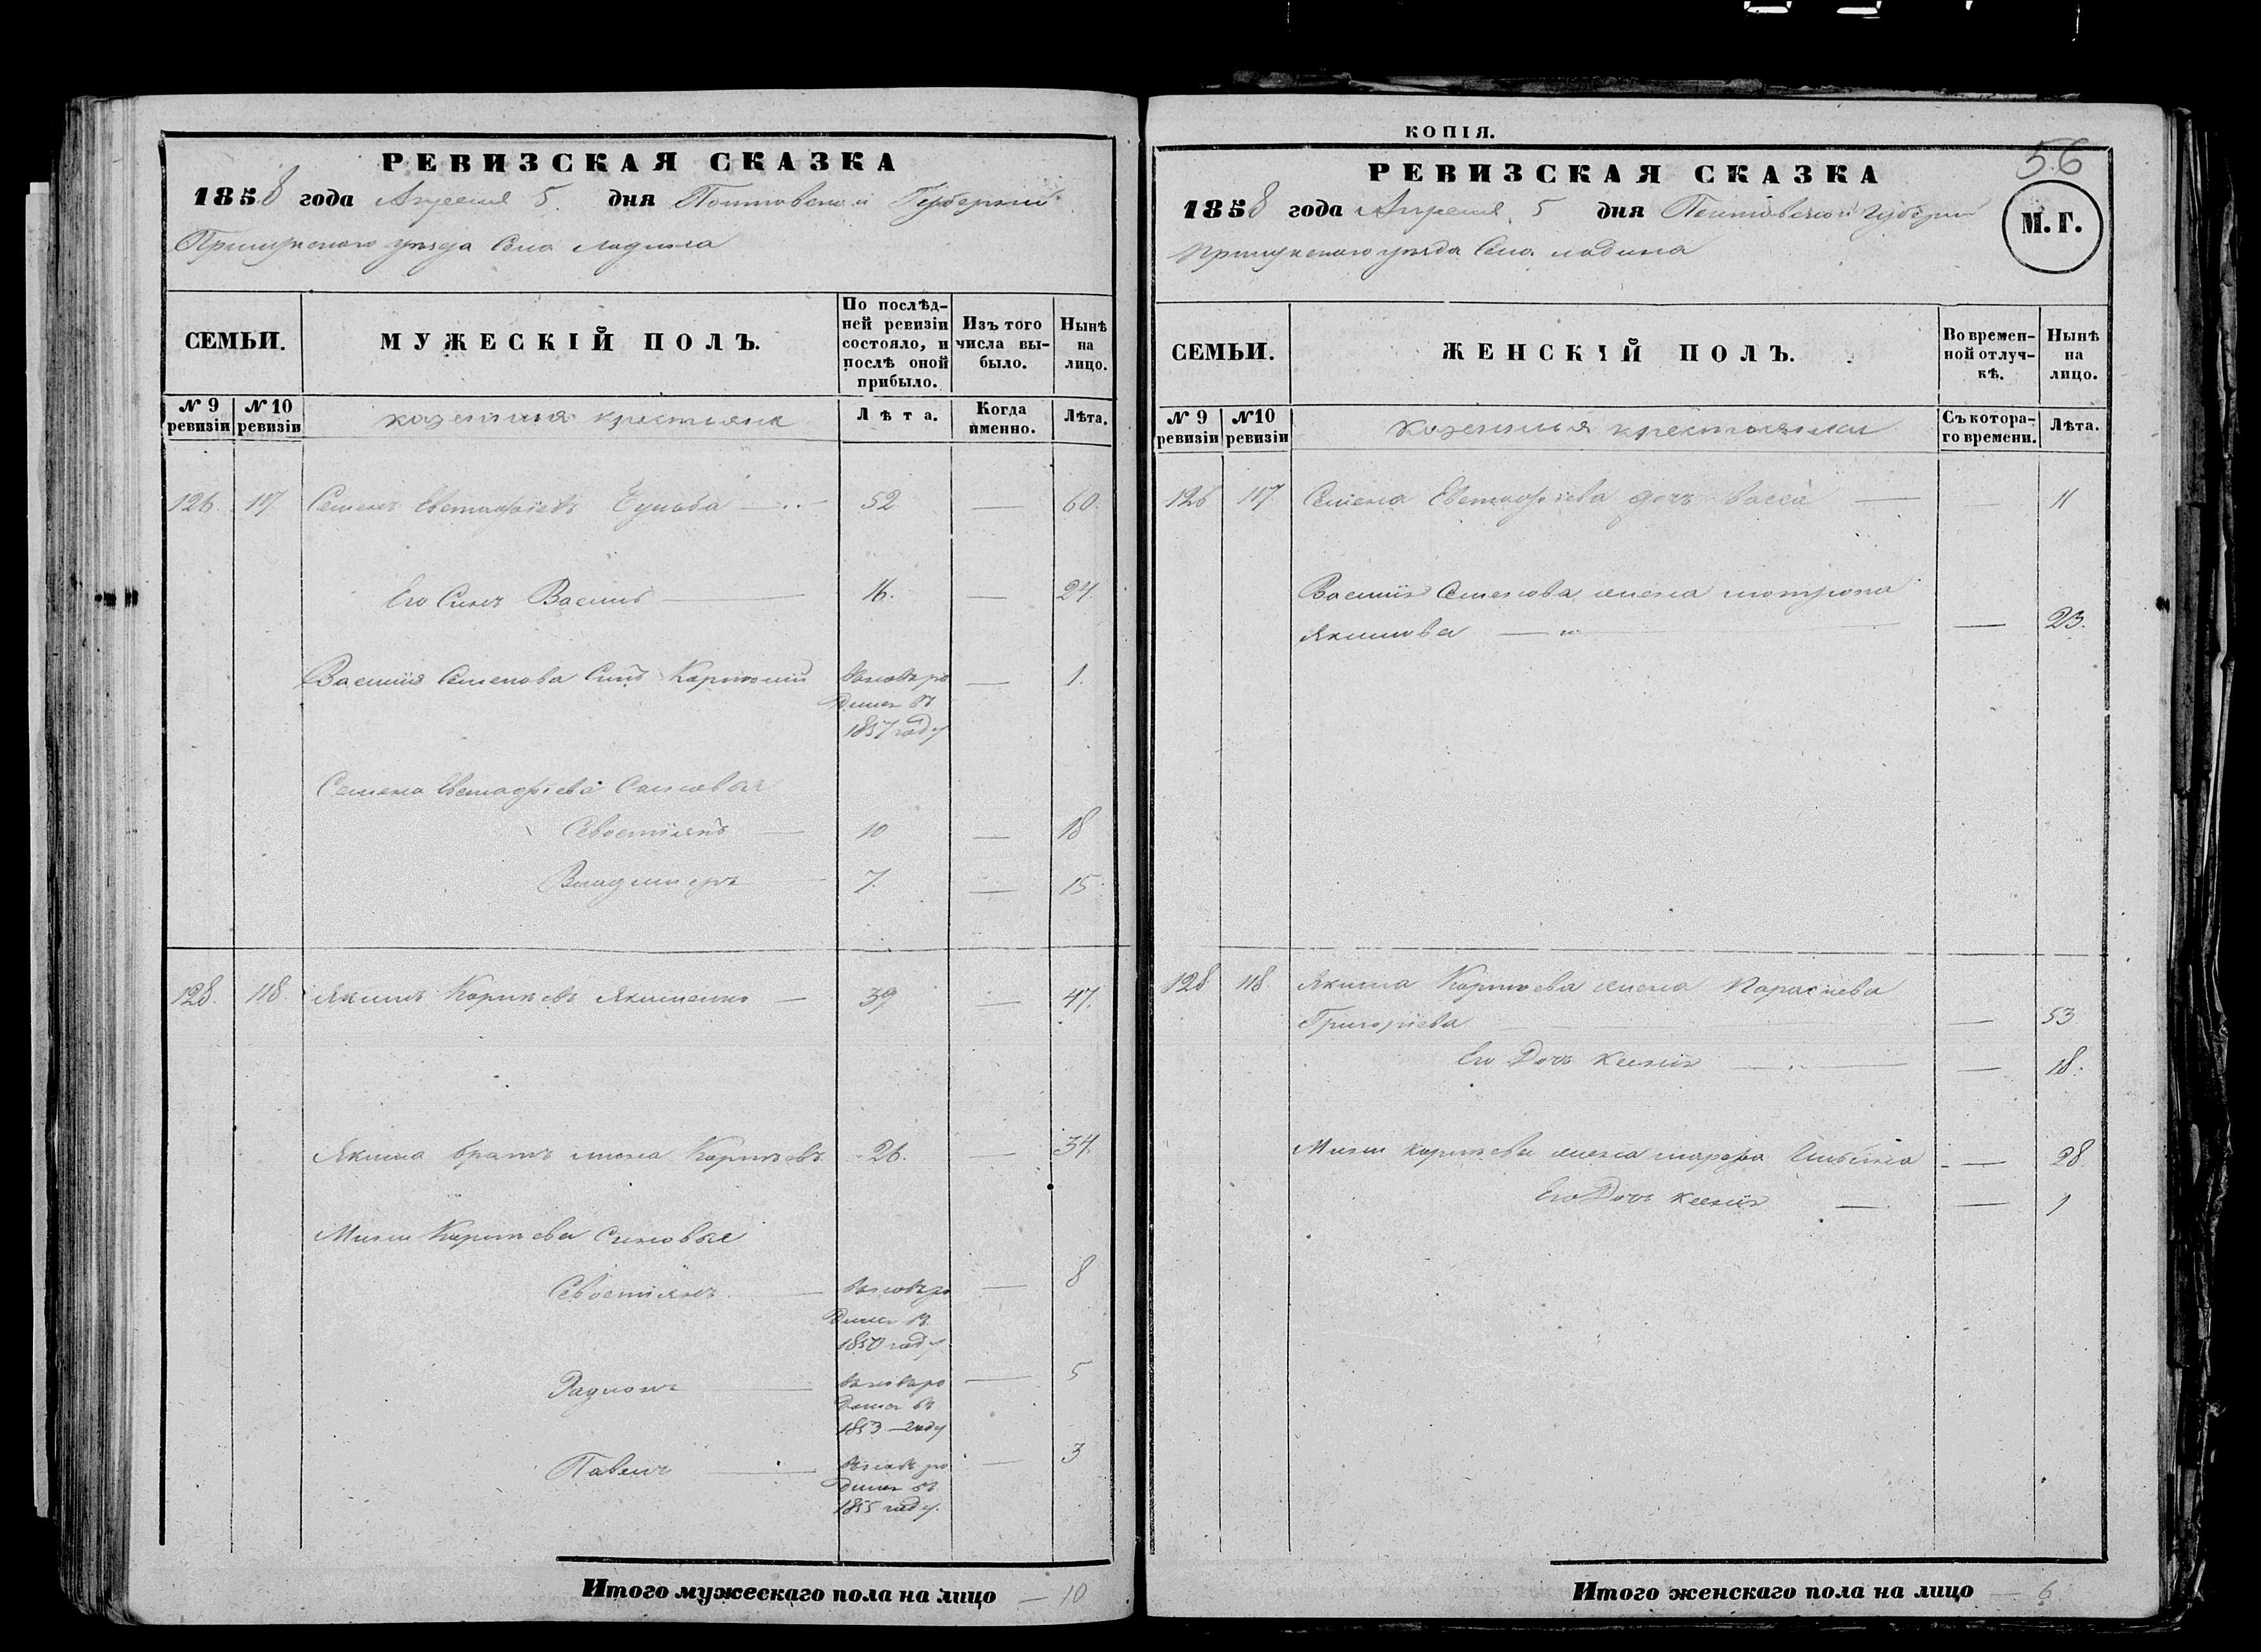 РЕВИЗСКАЯ СКАЗКА
1858 года Апреля 5. дня Полтавской Губернии
Прилукского уезда Села Ладина
СЕМЬИ.
МУЖЕСКІЙ ПОЛЪ.
По послѣд-
ней ревизіи
состояло, и
послѣ оной
прибыло.
Изъ того
числа вы-
было.
Нынѣ
на
лицо.
№ 9
ревизіи
№ 10
ревизіи
казенныя крестьяне
Лѣта.
Когда
именно.
Лѣта.
126. 117. Семенъ Евстафіевъ 52. — 60.
Его Сынъ Василь — 16. — 24.
Василія Семенова Сынъ Карпъ вновь ро — 1.
дился въ
1857 году
Семена Евстафіева Сыновья
Севостіянъ — 10 — 18
Владимеръ — 7. — 15.
128. 118. Якимъ Карпѣевъ Якименко — 39 — 47.
Якима братъ Мина Карпѣевъ 26. — 34.
Мины Карпѣева Сыновье
Севостіянъ — вновь ро — 8
дился въ
1850 году
Радионъ — вновь ро — 5
дился въ
1853 — году
Павелъ — вновь ро — 3
дился въ
1855 году.
Итого мужескаго пола на лицо — 10
КОПІЯ.
56
РЕВИЗСКАЯ СКАЗКА
1858 года Апреля 5 дня Полтавской Губерніи
М. Г.
Прилукского уезда Села Ладина
СЕМЬИ.
ЖЕНСКІЙ ПОЛЪ.
Во времен-
ной отлуч-
кѣ.
Нынѣ
на
лицо.
№ 9
ревизіи
№10
ревизіи
казенныя крестьянки
Съ котора-
го времени.
Лѣта.
126 117. Семена Евстафіева дочь Васса — — 11
Василія Семенова жена мотрона
Якимова — — 23.
128 118 Якима Карпѣева жена Параскева
Григоріева — 53
Его Дочь Ксенія — — 18.
Мины Карпѣева жена марфа — 28.
Его Дочь Ксенія — — 1
Итого женскаго пола на лицо — 6